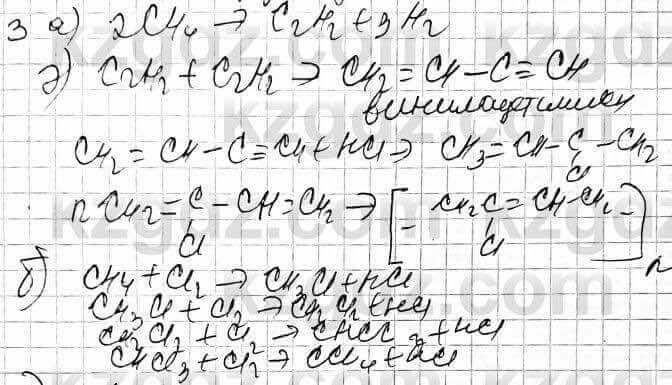 3 а) 2CH₄ → C₂H₂ + 3H₂
C₂H₂ + C₂H₂ → CH₂ = CH – C ≡ CH
винилацетилен
CH₂ = CH – C ≡ CH + HCl → CH₃ = CH – C – CH₂
Cl
n CH₂ = C – CH = CH₂ → [ – CH₂ C = CH – CH₂ – ] n
Cl Cl
б) CH₄ + Cl₂ → CH₃Cl + HCl
CH₃Cl + Cl₂ → CH₂Cl₂ + HCl
CH₂Cl₂ + Cl₂ → CHCl₃ + HCl
CHCl₃ + Cl₂ → CCl₄ + HCl